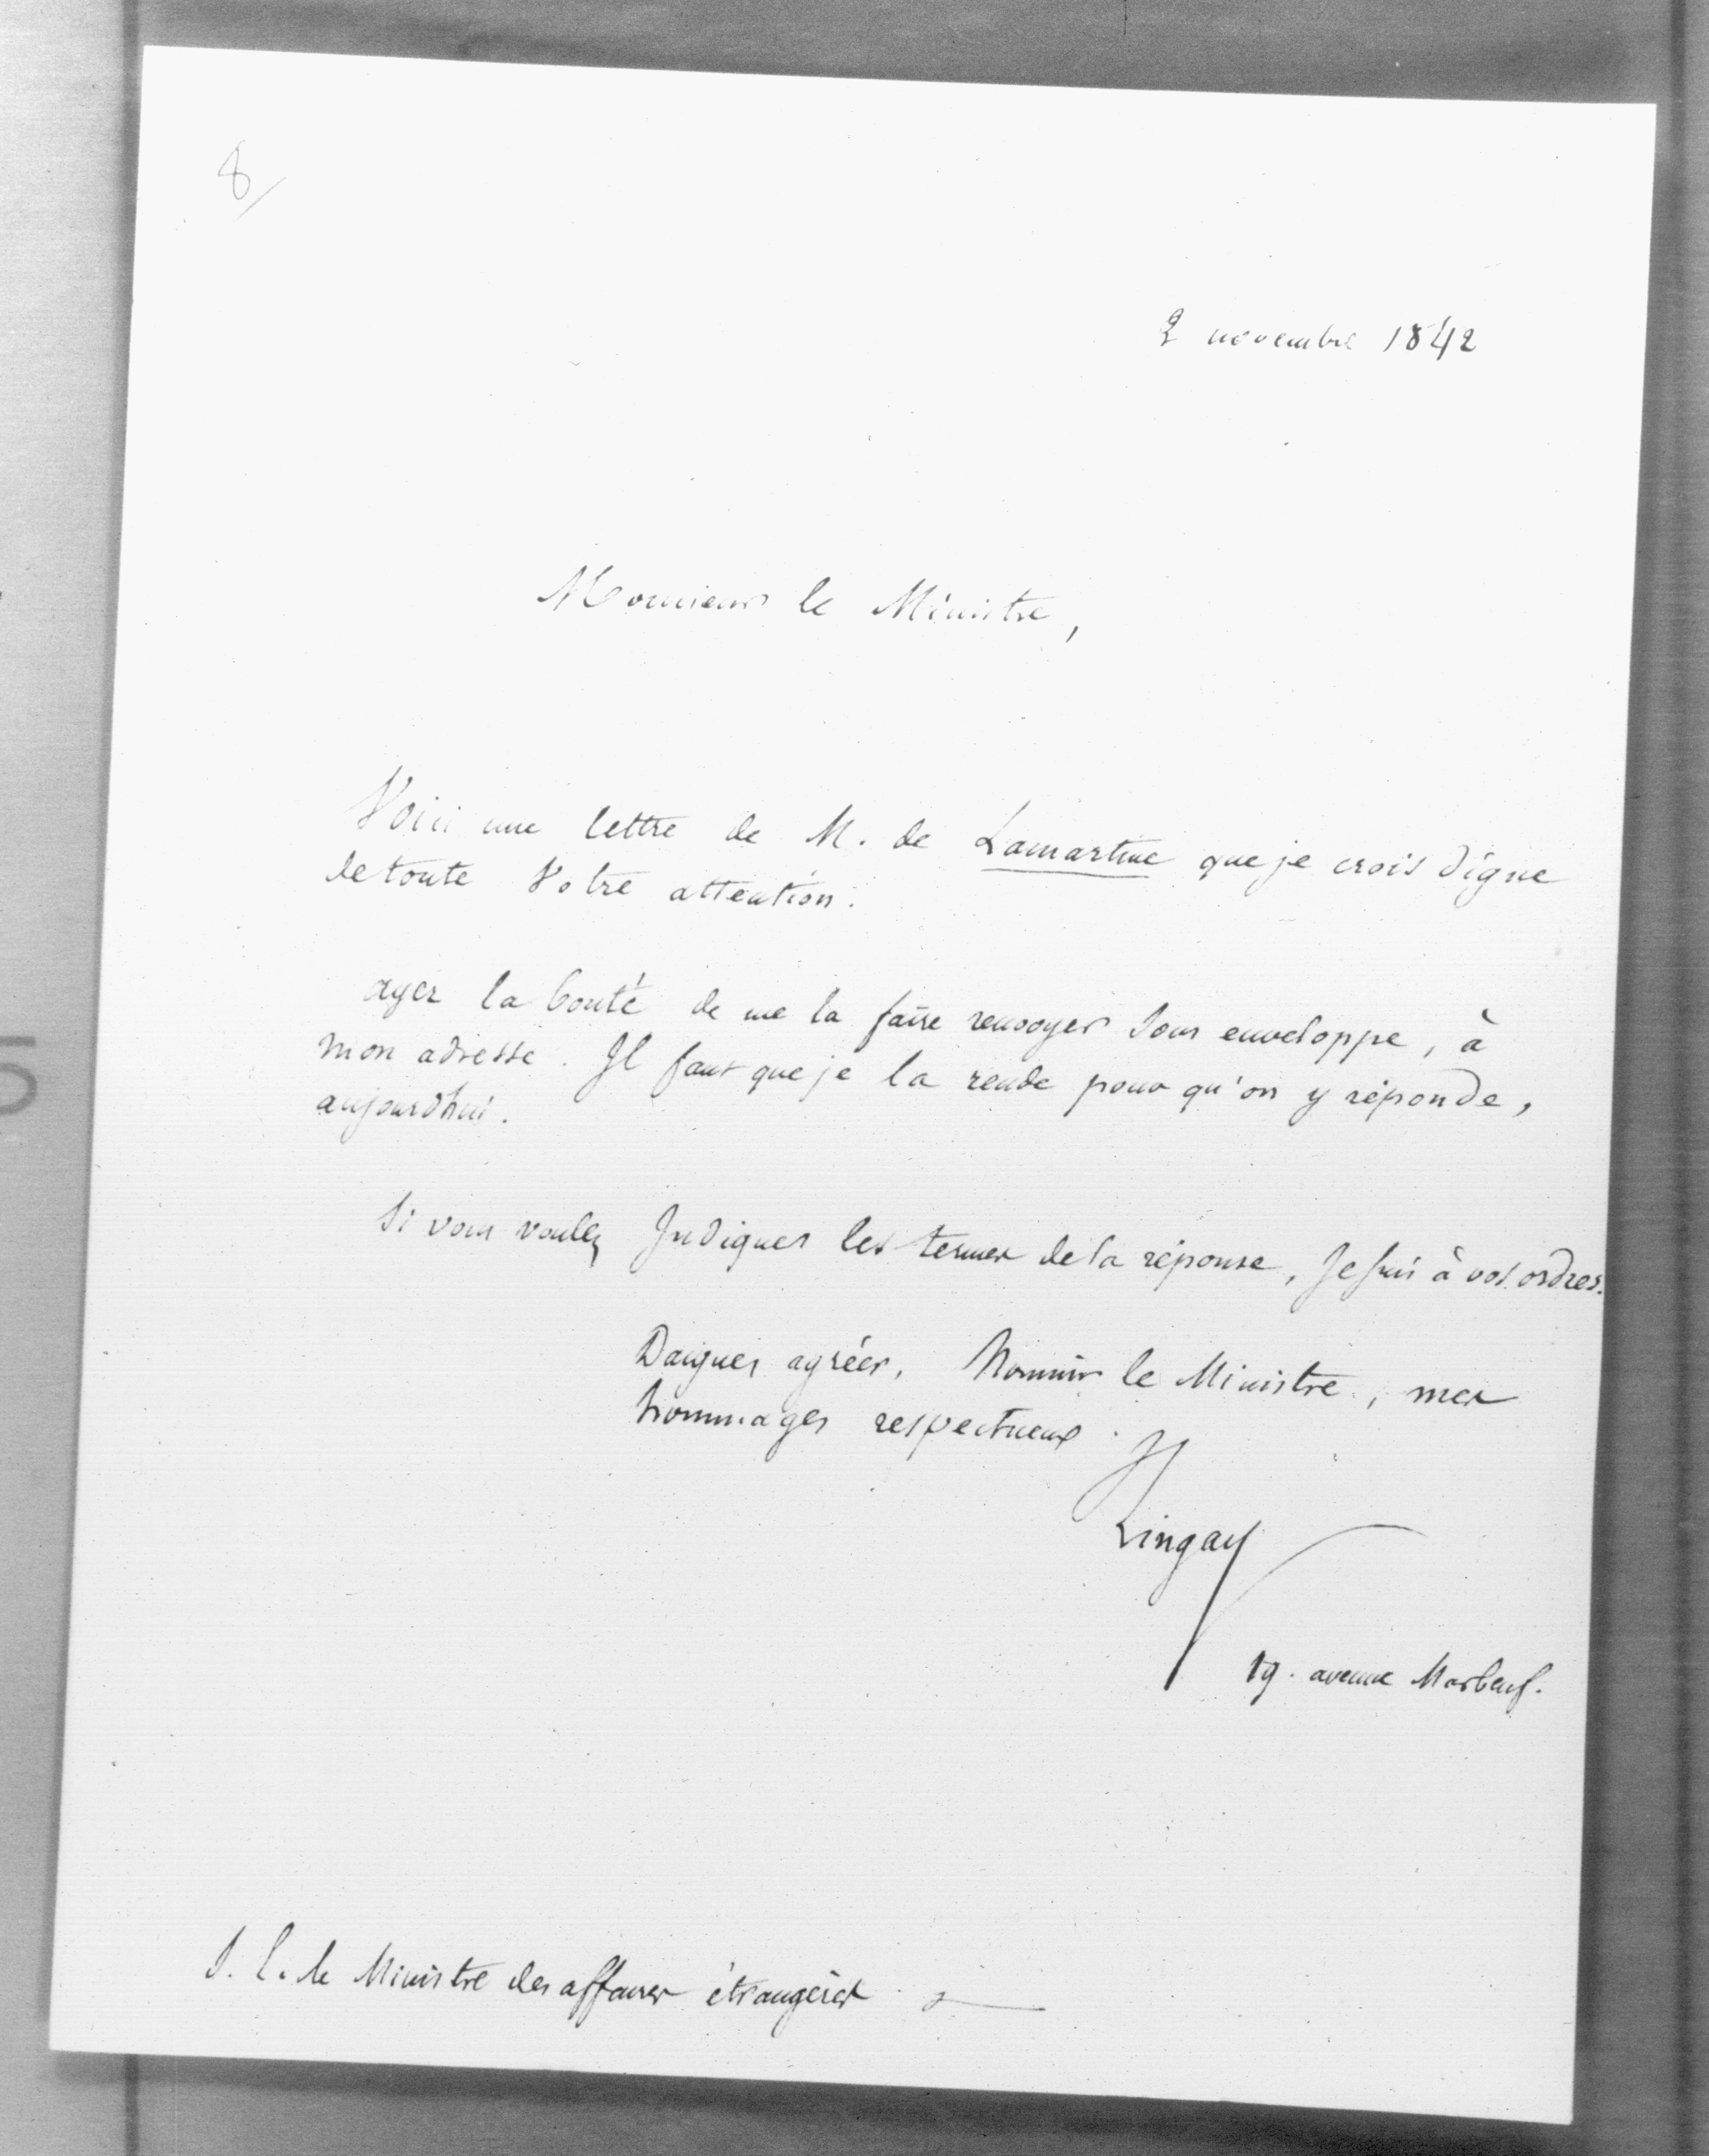 8/
2 novembre 1842
Monsieur le Ministre,
Voici une lettre de M. de Lamartine que je crois digne
de toute Votre attention.
ayez la bonté de me la faire renvoyer sous enveloppe, à
mon adresse. Il faut que je la rende pour qu'on y réponde,
aujourdhui.
Si vous voulez Indiquer les termes de la réponse, Je suis à vos ordres.
Daignez agréer, Monsieur le Ministre, mes
hommages respectueux.
J Lingay
19. avenue Marbeuf.
S. E. le Ministre des affaires étrangères